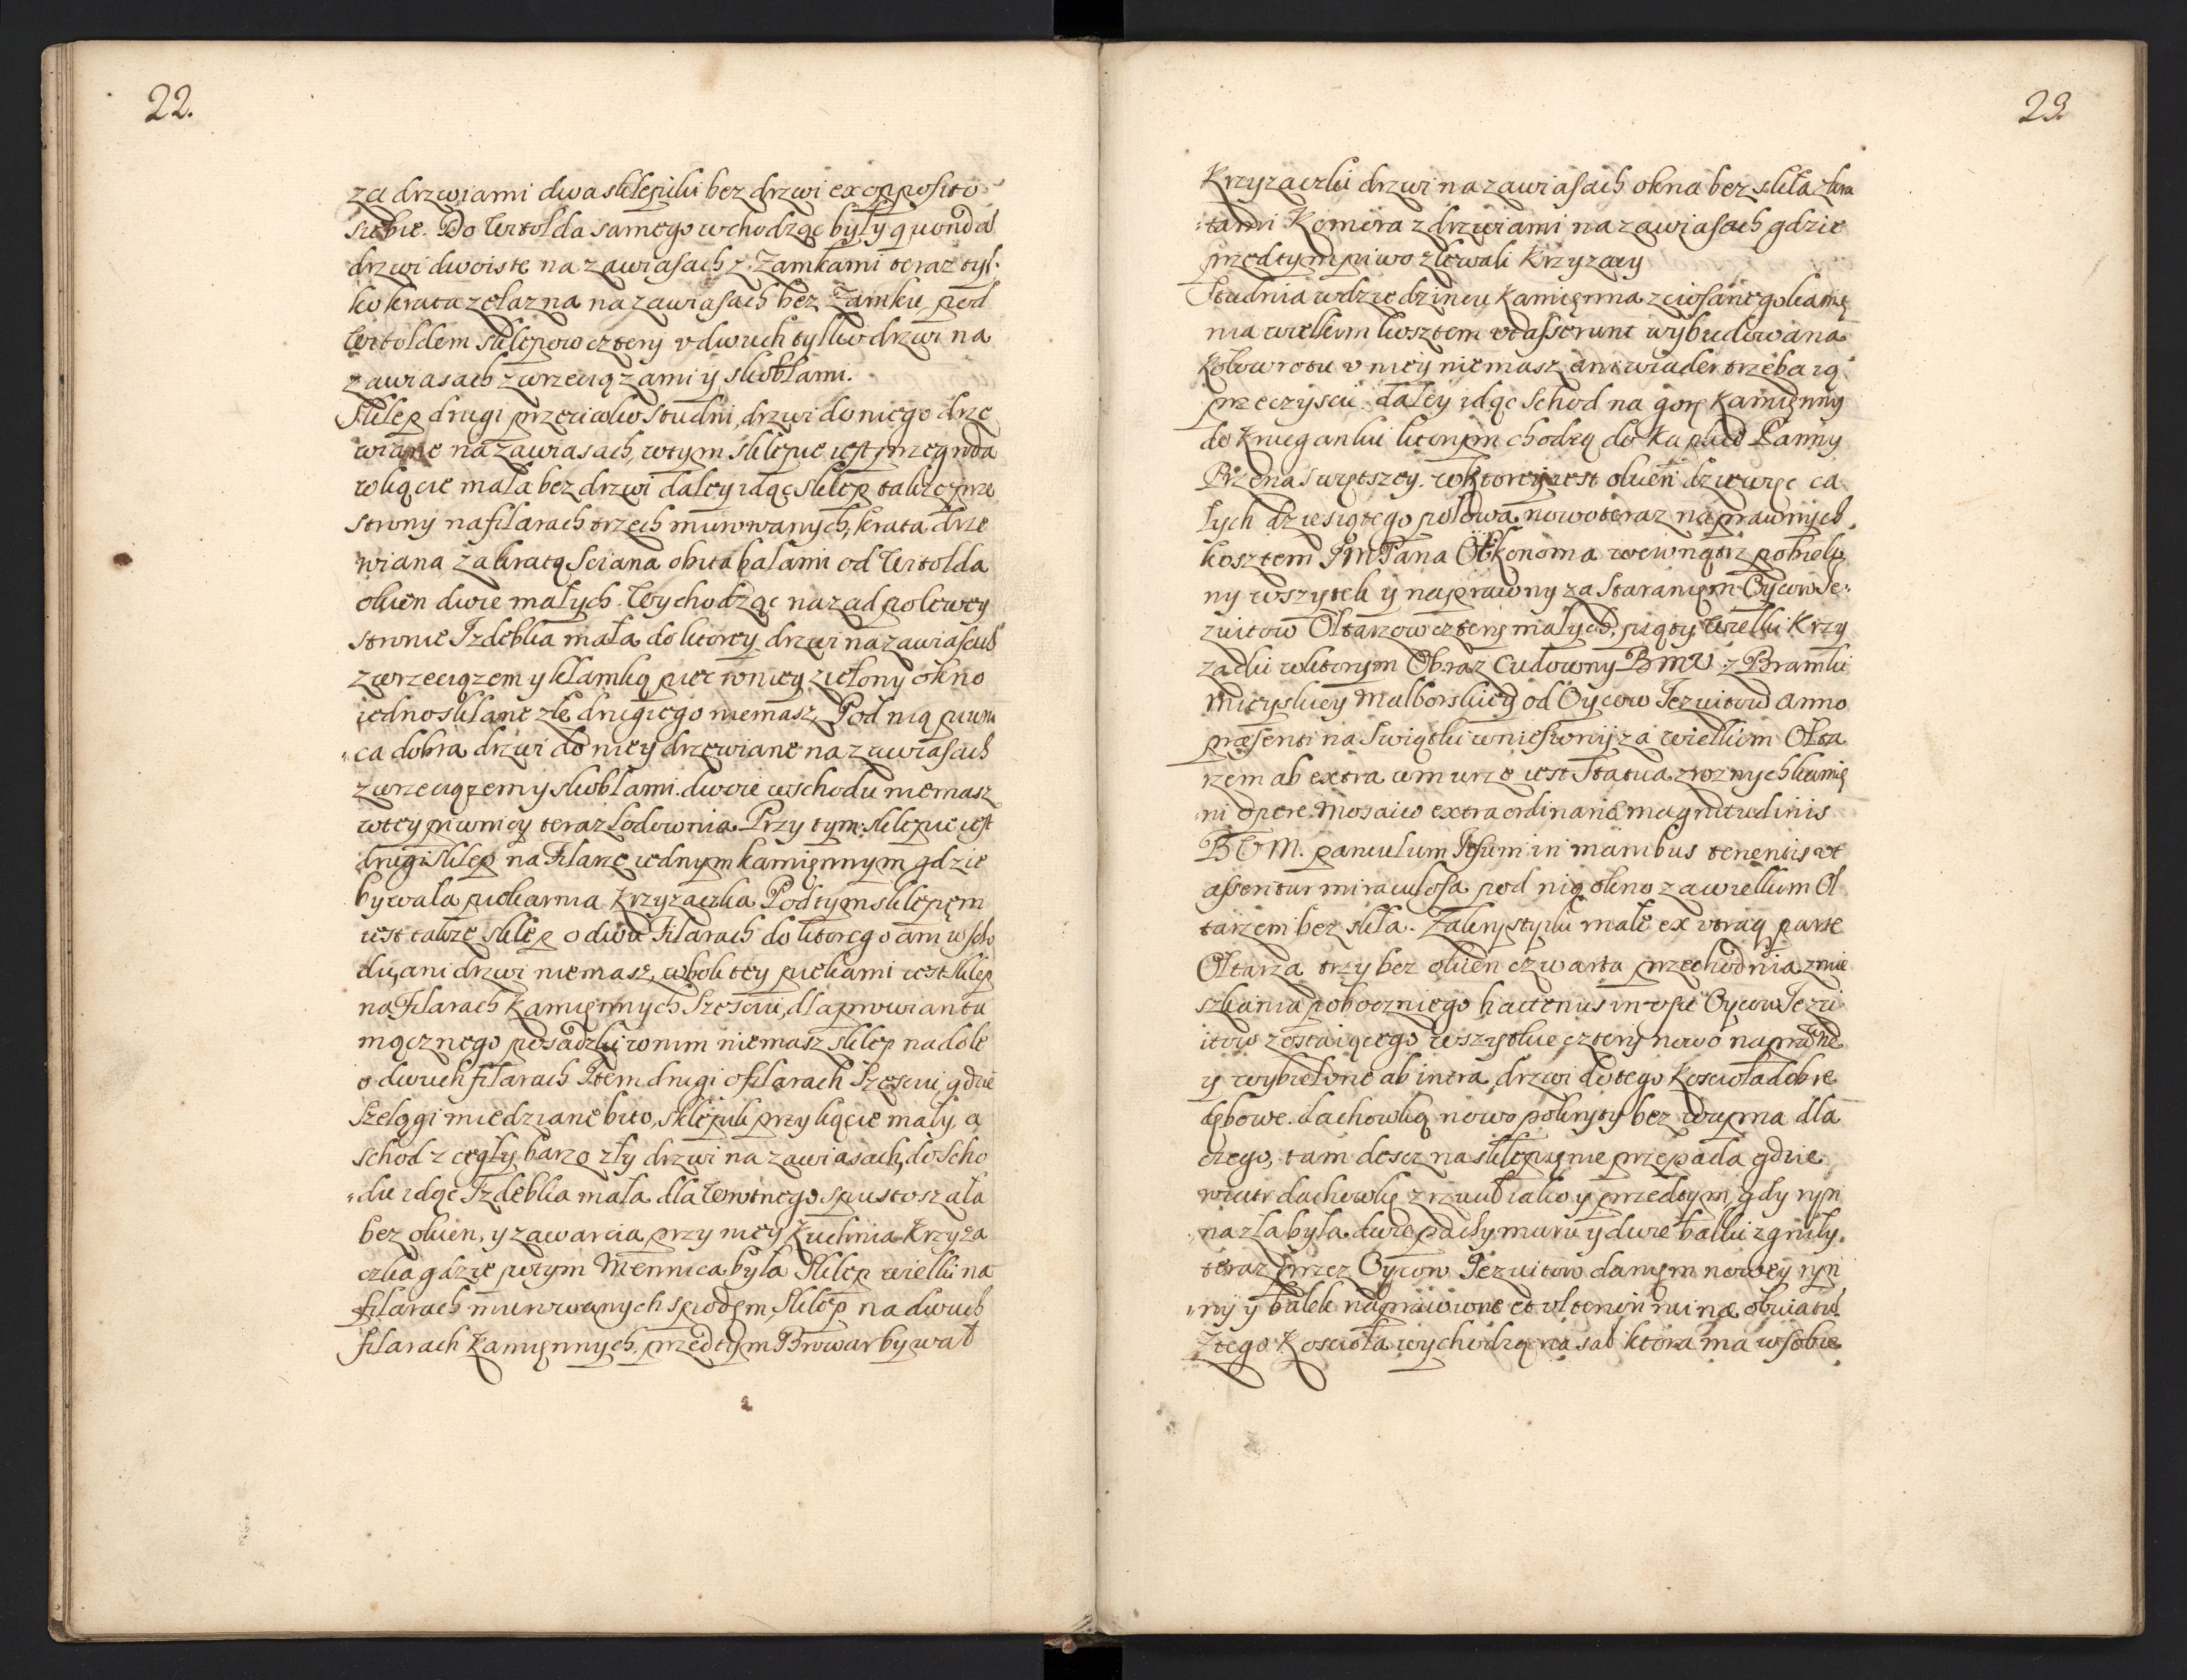 22.
za drzwiami dwa sklepiki bez drzwi ex opposito
siebie. Do Witolda samego wchodząc były quondā
drzwi dwoiste na zawiasach z Zamkami teraz tyl-
ko krata żelazna na zawiasach bez Zamku, pod
Witoldem sklepow cztery v dwuch tylko drzwi na
zawiasach z wrzeciązami y skoblami.
Sklep drugi przeciwko Studni, drzwi do niego drze
wiane na zawiasach, w tym sklepie iest przegroda
w kącie mała bez drzwi daley idąc sklep także prze
strony na filarach trzech murowanych, krata drze
wiana za kratą Sciana obita balami od Witolda
okien dwie małych. Wychodząc nazad po lewey
stronie Izdebka mała do ktorey drzwi na zawiasach
z wrzeciązem y klamką piec w niey zielony okno
iedno sklane złe drugiego niemasz, Pod nią piwni
ca dobra drzwi do niey drzewiane na zawiasach
z wrzeciązem y skoblami. dwoie wschodu niemasz
w tey piwnicy teraz Lodownia. Przy tym sklepie iest
drugi sklep na Filarze iednym kamiennym gdzie
bywała piekarnia Krzyzacka Pod tym sklepięm
iest także sklep o dwu Filarach do ktorego ani wscho
du, ani drzwi niemasz, w bok tey piekarni iest sklep
na Filarach Kamięnnych Szesciu, dla prowiantu
mącznego posadzki w nim niemasz sklep na dole
o dwuch filarach Item drugi o filarach Szesciu, gdzie
Szelągi miedziane bito, sklepik przy kącie mały, a
schod z cegły barzo zły drzwi na zawiasach, do scho
du idąc Izdebka mała dla spustoszała
bez okien, y zawarcia przy niey Kuchnia Krzyza
cka gdzie potym Mennica była Sklep wielki na
filarach murowanych spodem, Sklep na dwuch
filarach Kamięnnych, przedtym Browar bywał
23
Krzyzacki drzwi na zawiasach okna bez skła z kra
tami Komora z drzwiami na zawiasach gdzie
przedtym piwo zlewali Krzyzacy
Studnia w dziedzincu Kamięnna z ciosanego kamię
nia wielkim kosztem vt asserunt wybudowana
Kołowrotu v niey niemasz ani wiader trzeba ią
przeczyscic daley idąc Schod na gorę Kamięnny
do Kruzganku ktorym chodzą do Kaplice Panny
Przenaswiętszey. w ktorey iest okien dziewięc ca
łych dziesiątego połowa nowo teraz naprawnych
kosztem JmPana Oekonoma wewnątrz pobielo
ny wszytek y naprawny za staranięm Oycow Je
zuitow Ołtarzow cztery małych, piąty Wielki Krzy
zacki w ktorym Obraz Cudowny BMV z Bramki
Mieyskiey Malborskiey od Oycow Jezuitow Anno
præsenti na Swiątki wniesiony za wielkim Ołta
rzem ab extra w murze iest Statua z roznych kamię
ni opere Mosaico extraordinariæ magnitudinis
BVM. parvulum Jesum in manibus tenentis vt
asseritur miraculosa pod nią okno za wielkim Oł
tarzem bez skła. Zakrystyiki małe ex vtraq parte
Ołtarza trzy bez okien czwarta przechodnia z mie
szkania pobocznego hactenus in vsu Oycow Jezu
itow zostaiącego wszystkie cztery nowo naprawne
y wybielone ab intra, drzwi do tego Kosciola dobre
dębowe. dachowką nowo pokryty bez wapna dla
czego, tam desz na sklepięnie przepada gdzie
wiatr dachowkę zrzucił iako y przedtym, gdy ryn
na zła była dwie muru y dwie balki zgniły.
teraz przez Oycow Jezuitow danięm nowey ryn
ny y balek naprawione et vlteriori ruinæ obviatū
Z tego Kosciola wychodząc na sal ktora ma w sobie